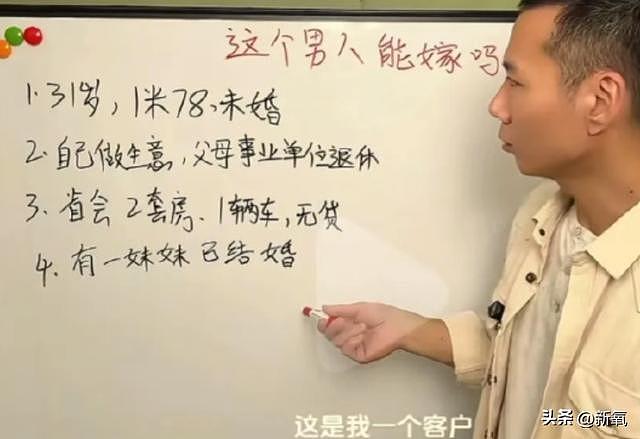 这个男人能嫁吗
1. 31岁, 1米78、未婚
2. 自己做生意, 父母事业单位退休
3、省会2套房、1辆车, 无贷
4、有一妹妹已结婚
这是我一个客户
头条 @新氧